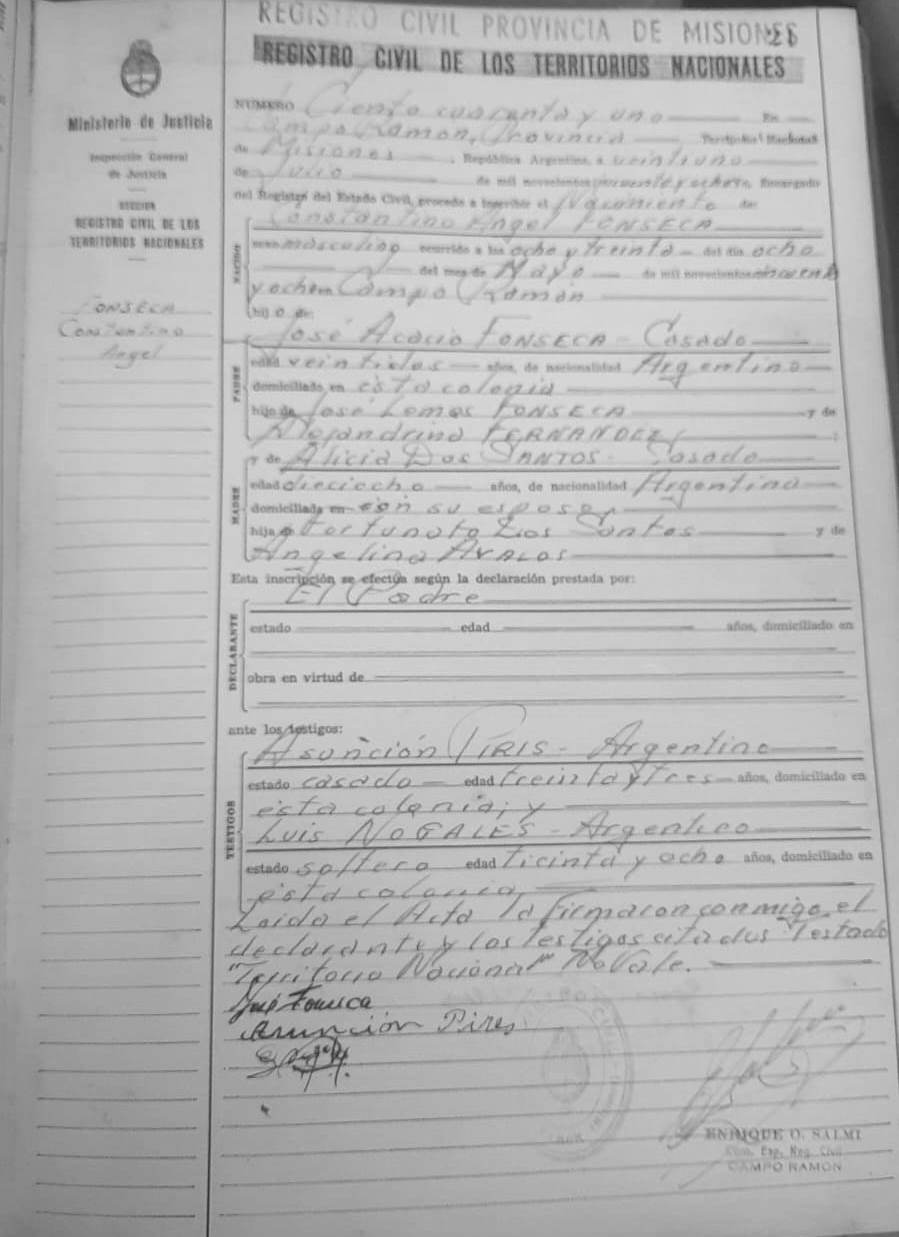 REGISTRO CIVIL PROVINCIA DE MISIONES
REGISTRO CIVIL DE LOS TERRITORIOS NACIONALES
Ministerio de Justicia
Inspección General
de Justicia
SECCION
REGISTRO CIVIL DE LOS
TERRITORIOS NACIONALES
FONSECA
Constantino
Angel
NUMERO Ciento cuarenta y uno En
Campo Ramon, Provincia Territorio Nacional
de Misiones, República Argentina, a veintiuno
de Julio de mil novecientos y ocho Encargado
del Registro del Estado Civil, procedo a inscribir el Nacimiento de:
NACIDO
Constantino Angel FONSECA
sexo masculino ocurrido a las ocho y treinta del día ocho
del mes de Mayo de mil novecientos
y ocho en Campo Ramón
hijo de:
PADRE
José Acacio FONSECA - Casado
edad veintidos años, de nacionalidad Argentino
domiciliado en esta colonia
hijo de José Lemos FONSECA y de
Alejandrina FERNANDEZ;
MADRE
y de Alicia Dos SANTOS - Casado
edad dieciocho años, de nacionalidad Argentina
domiciliada en con su esposo,
hija de Fortunato Dos Santos y de
Angelina AVALOS
Esta inscripción se efectúa según la declaración prestada por:
DECLARANTE
El Padre
estado edad años, domiciliado en
obra en virtud de
ante los testigos:
TESTIGOS
Asunción PIRIS - Argentino
estado casado edad treinta y tres años, domiciliado en
esta colonia; y
Luis NOGALES - Argentino
estado soltero edad treinta y ocho años, domiciliado en
esta colonia,
Leida el Acta la firmaron conmigo, el
declarante y los testigos citados Testado
"Territorio Nacional" No Vale.
José Fonseca
Asunción Pires
ENRIQUE O. SALMI
Enc. Reg. Civil
CAMPO RAMON